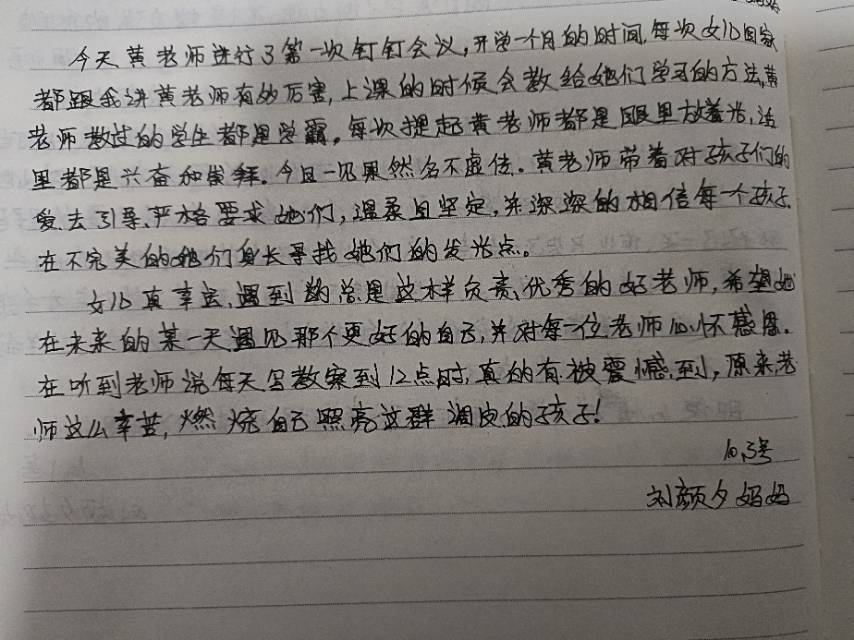 今天黄老师进行了第一次钉钉会议,开学一个月的时间,每次女儿回家
都跟我讲黄老师有多厉害,上课的时候会教给她们学习的方法,黄
老师教过的学生都是学霸。每次提起黄老师都是眼里放着光,话
里都是兴奋和崇拜。今日一见果然名不虚传。黄老师带着对孩子们的
爱去引导、严格要求她们,温柔且坚定,并深深的相信每一个孩子,
在不完美的她们身长寻找她们的发光点。
女儿真幸运,遇到的总是这样负责、优秀的好老师,希望她
在未来的某一天遇见那个更好的自己,并对每一位老师心怀感恩。
在听到老师说每天写教案到12点时,真的有被震憾到,原来老
师这么辛苦,燃烧自己照亮这群调皮的孩子!
10.3号
刘颜夕妈妈